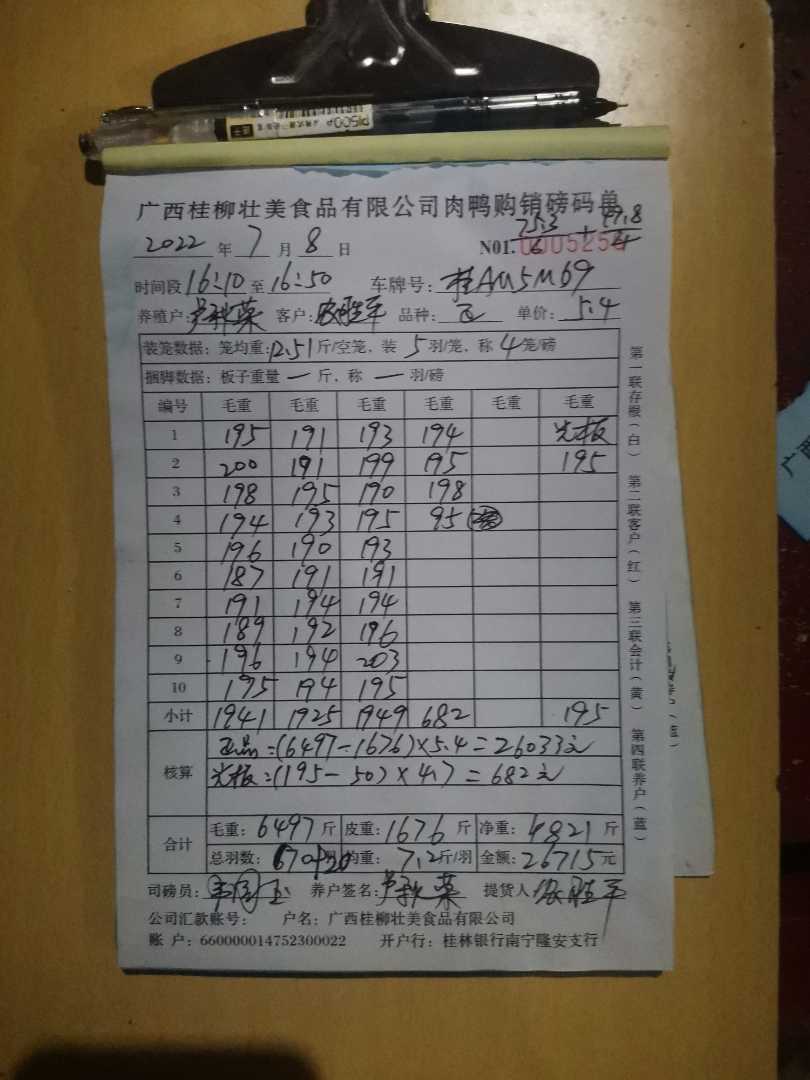 PISCOP
广西桂柳壮美食品有限公司肉鸭购销磅码单
2022 年 7 月 8 日 N01.
时间段 16:10 至 16:50 车牌号: 桂AM5M69
养殖户: 客户: 品种: 单价: 5.4
装笼数据: 笼均重: 12.51 斤/空笼、装 5 羽/笼、称 4 笼/磅
捆脚数据: 板子重量 一 斤、称 一 羽/磅
编号 毛重 毛重 毛重 毛重 毛重 毛重
1 195 191 193 194 光板
2 200 191 199 195 195
3 198 195 190 198
4 194 193 195 95
5 196 190 193
6 187 191 191
7 191 194 194
8 189 192 196
9 196 194 203
10 195 194 195
小计 1941 1925 1949 682 195
核算 正品:(6497-1676)×5.4=26033元
光板:(195-50)×4.7=682元
合计 毛重: 6497 斤 皮重: 1676 斤 净重: 4821 斤
总羽数: 均重: 7.2 斤/羽 金额: 26715 元
司磅员: 养户签名: 提货人:
公司汇款账号: 户名: 广西桂柳壮美食品有限公司
账 户: 660000014752300022 开户行: 桂林银行南宁隆安支行
第一联存根(白) 第二联客户(红) 第三联会计(黄) 第四联养户(蓝)
广西